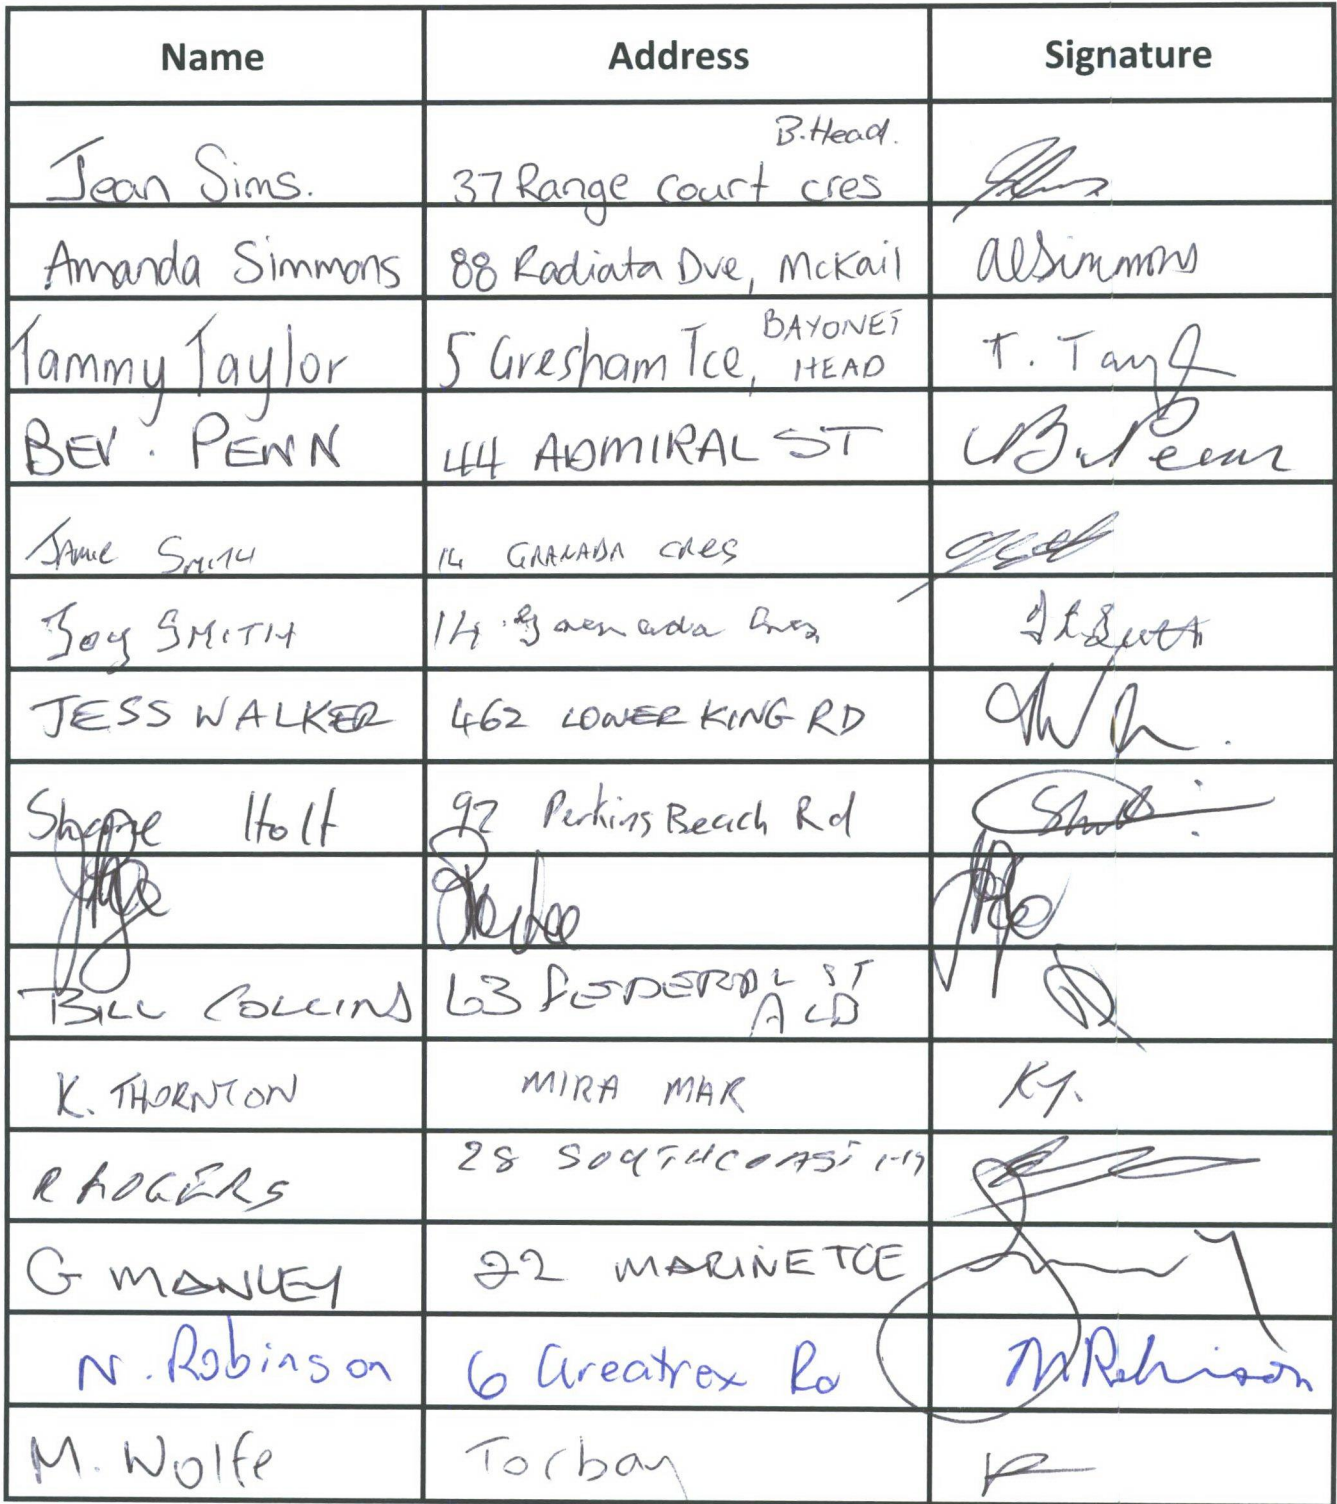 Name Address Signature
B.Head.
Jean Sims. 37 Range Court cres
Amanda Simmons 88 Radiata Dve, McKail alSimmons
BAYONET
Tammy Taylor 5 Gresham Tce, HEAD T. Tayl
BEV. PENN 44 ADMIRAL ST B. Penn
Jamie Smith 14 GRANADA cres
Joy SMITH 14 Grenada Cres
JESS WALKER 462 LOWER KING RD
Shane Holt 92 Perkins Beach Rd
BILL COLLINS 63 FEDERAL ST
ALB
K. THORNTON MIRA MAR KT.
R ROGERS 28 SOUTHCOAST HY
G MANLEY 22 MARINE TCE
N. Robinson 6 Greatrex Rd N Robinson
M. Wolfe Torbay